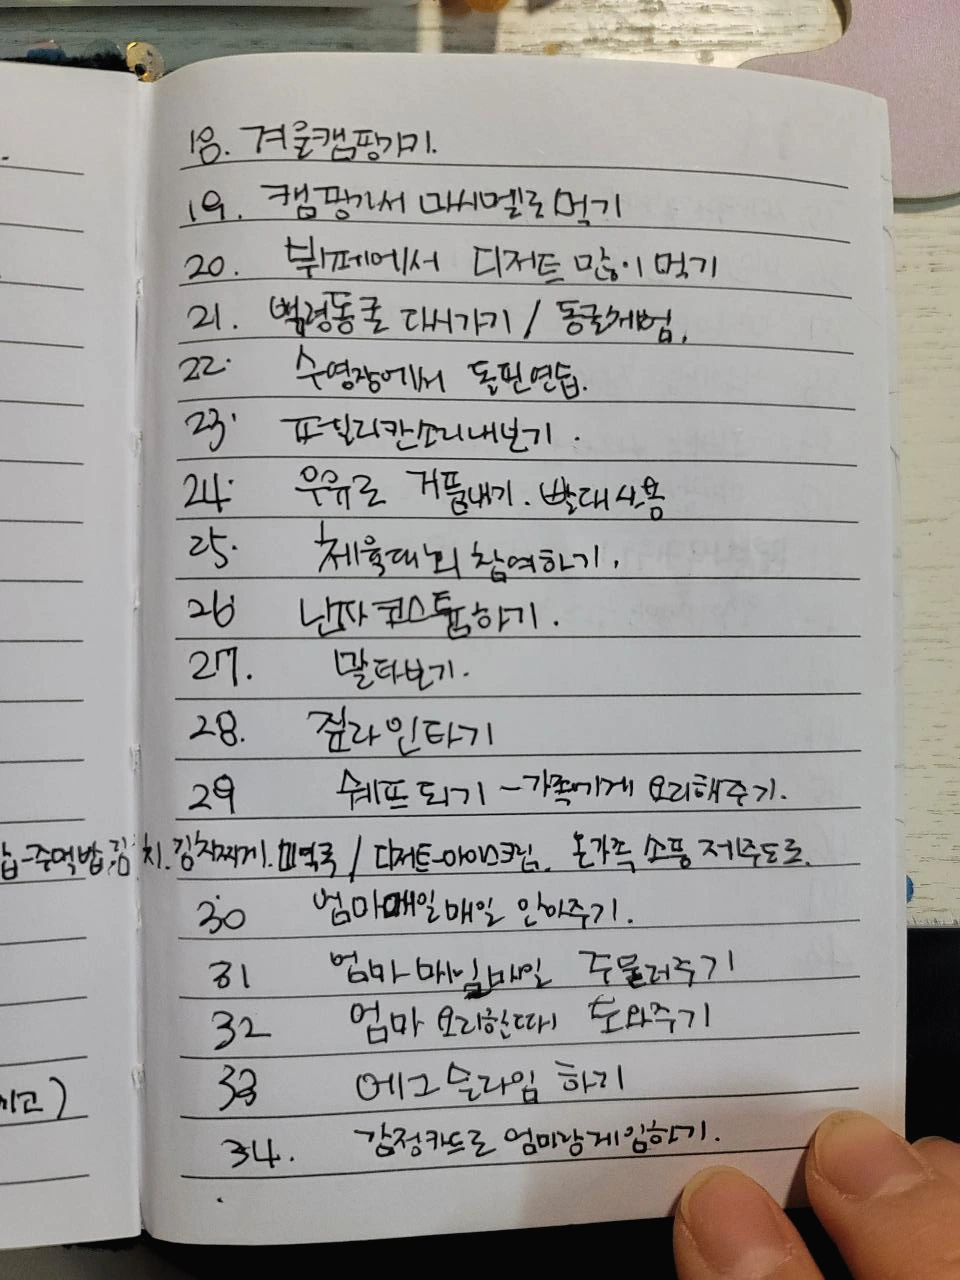 18. 겨울캠핑가기.
19. 캠핑가서 마시멜로먹기
20. 뷔페에서 디저트 많이 먹기
21. 백령동굴 다시가기 / 동굴체험.
22. 수영장에서 돌핀연습.
23. 펠리칸소리내보기.
24. 우유로 거품내기. 빨대사용
25. 체육대회 참여하기.
26 닌자코스튬하기.
27. 말타보기.
28. 짚라인타기
29 쉐프되기 - 가족에게 요리해주기.
밥-주먹밥,김치.김치찌게.미역국 / 디저트-아이스크림. 온가족 소풍 제주도로.
30 엄마매일매일 안아주기.
31 엄마매일매일 주물러주기
32 엄마 요리할때 도와주기
33 에그슬라임 하기
34. 감정카드로 엄마랑게임하기.
지고)